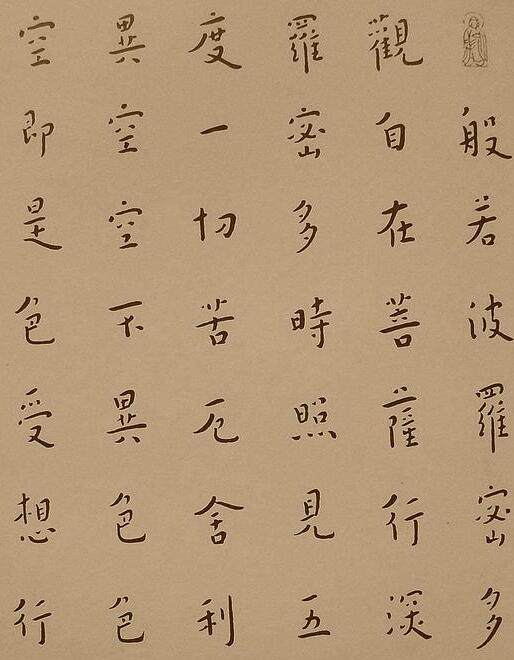 般若波羅密多
觀自在菩薩行深
羅密多時照見五
度一切苦厄舍利
異空空不異色色
空即是色受想行